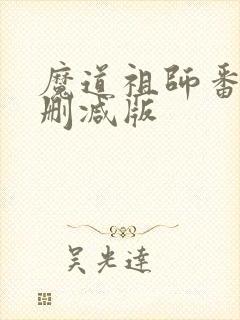 魔道祖師番
刪減版
吴光達